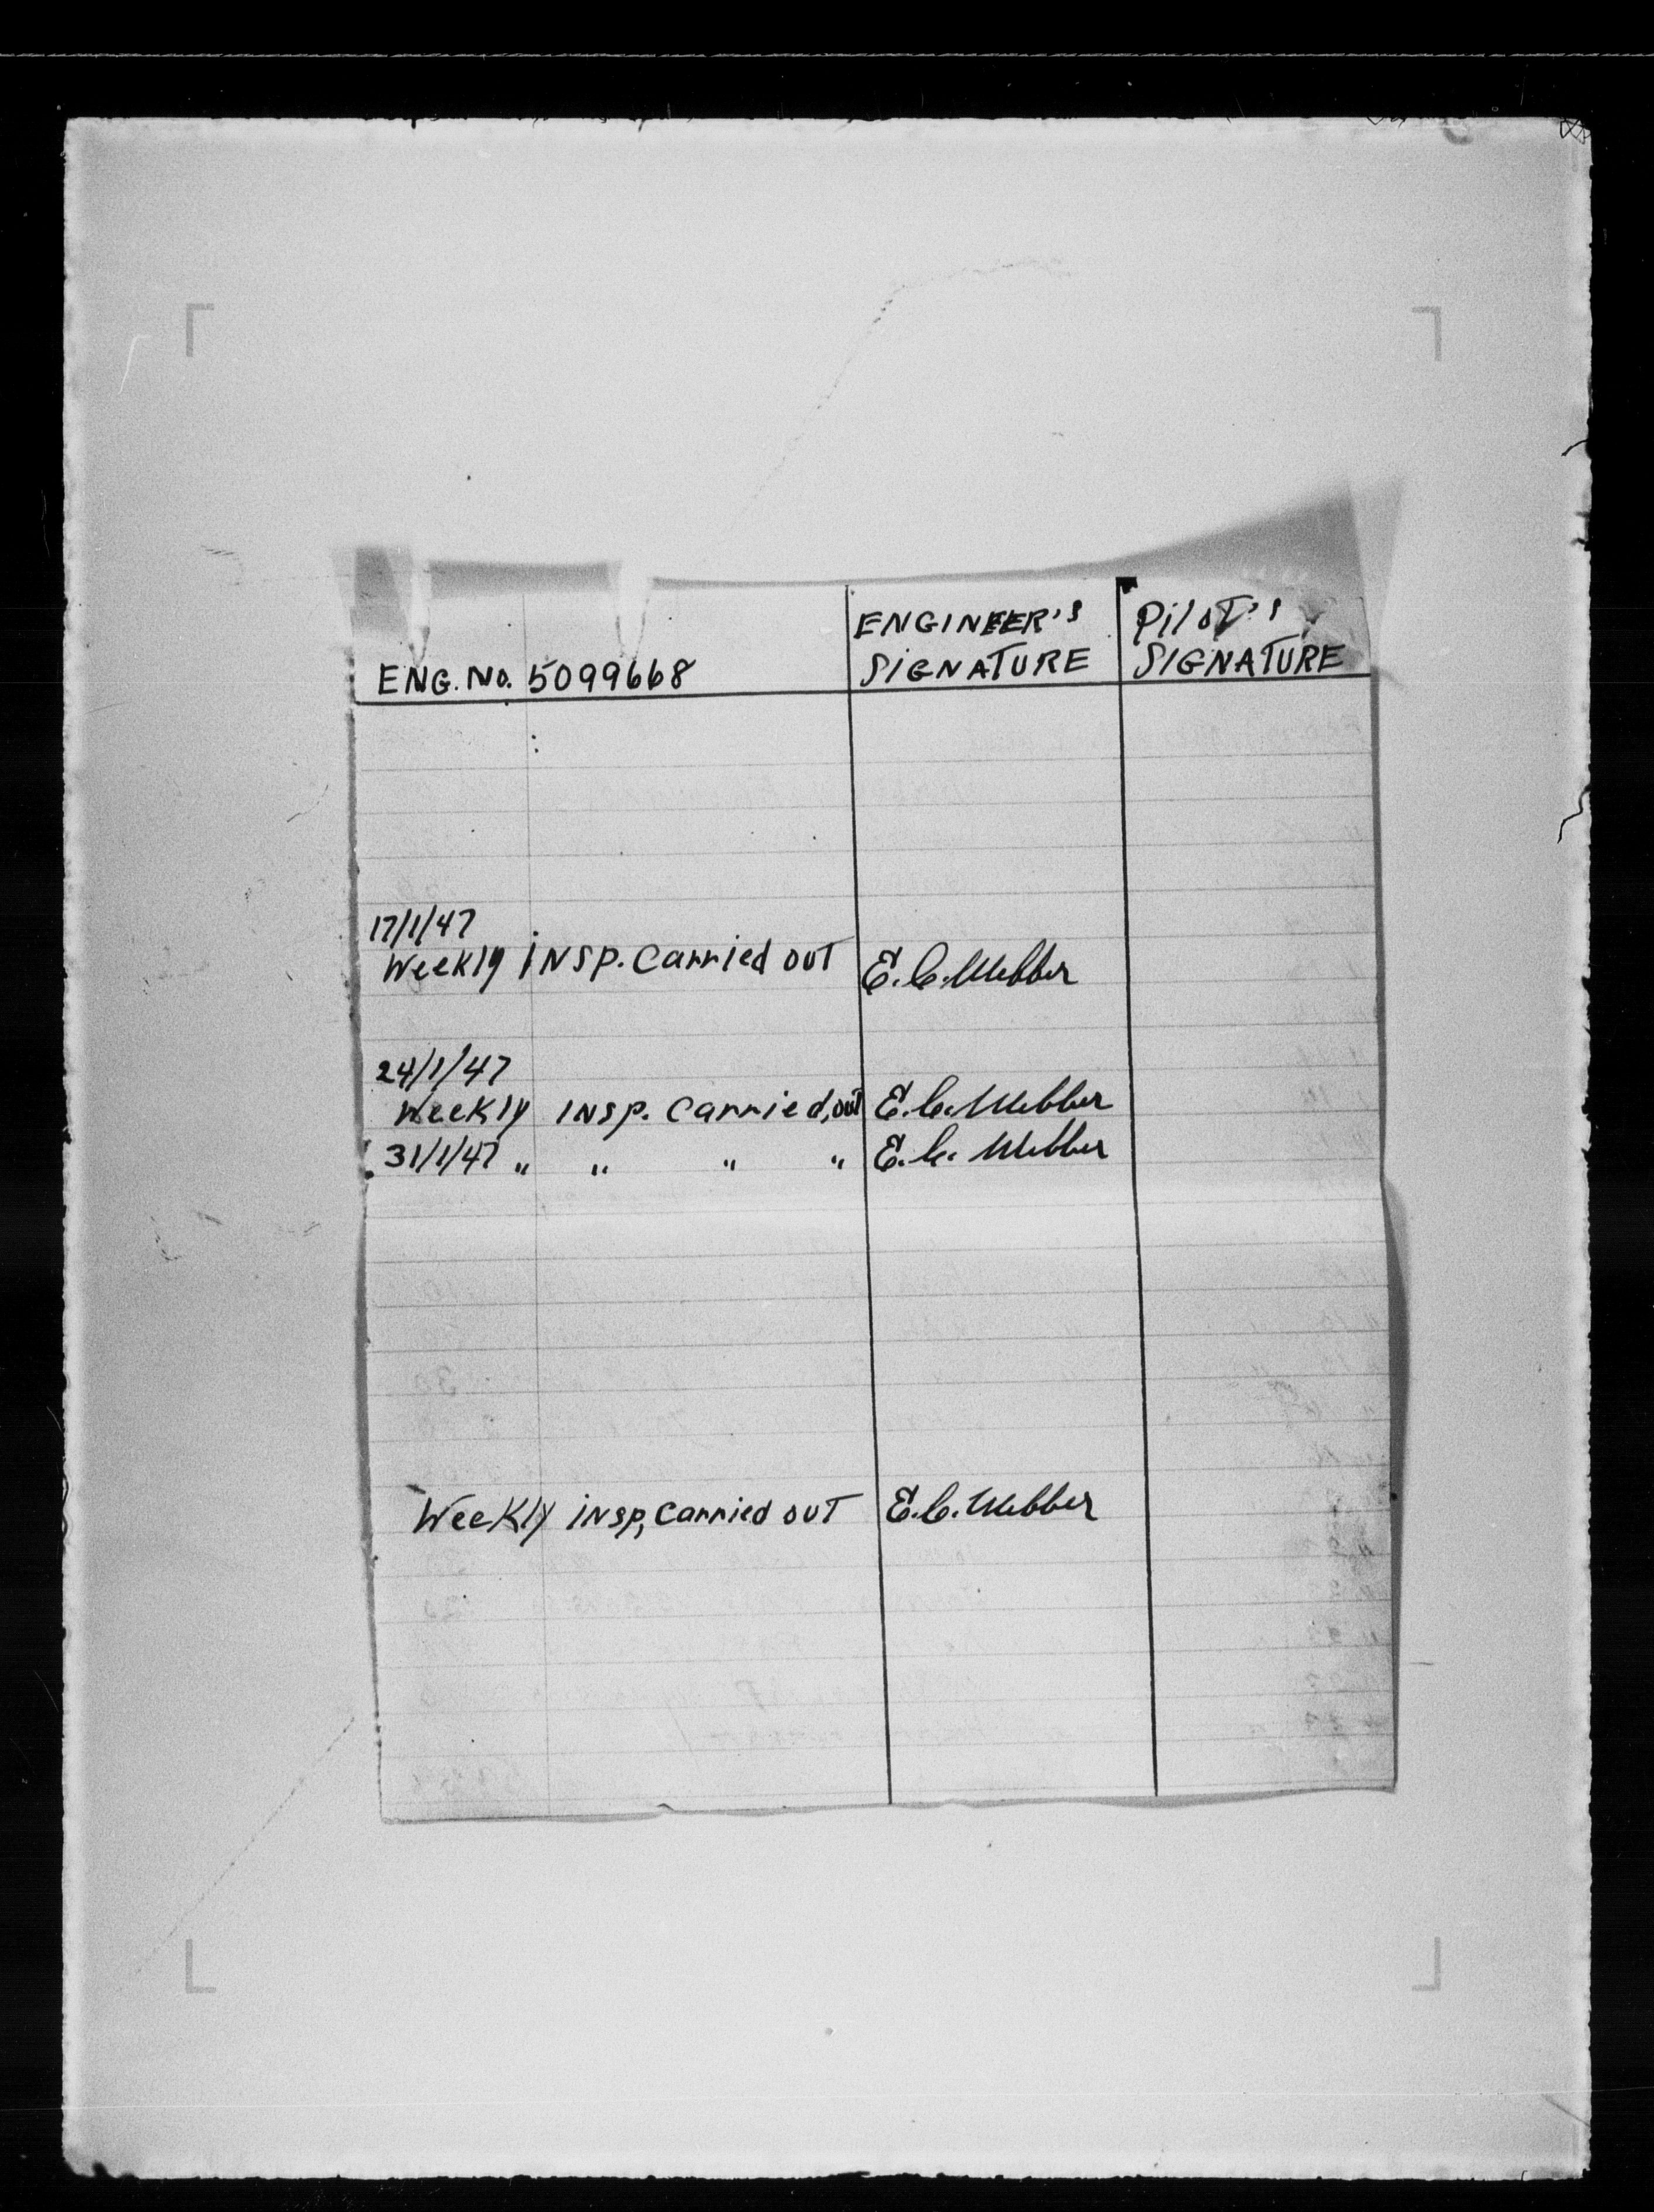 ENGINEER'S PiloT's
ENG. No. 5099668 SIGNATURE SIGNATURE
17/1/47
Weekly iNSP. Carried OUT E.C. Webber
24/1/47
Weekly INSP. Carried, out E.C. Webber
31/1/47 " " " " E.C. Webber
Weekly iNSP, Carried OUT E.C. Webber